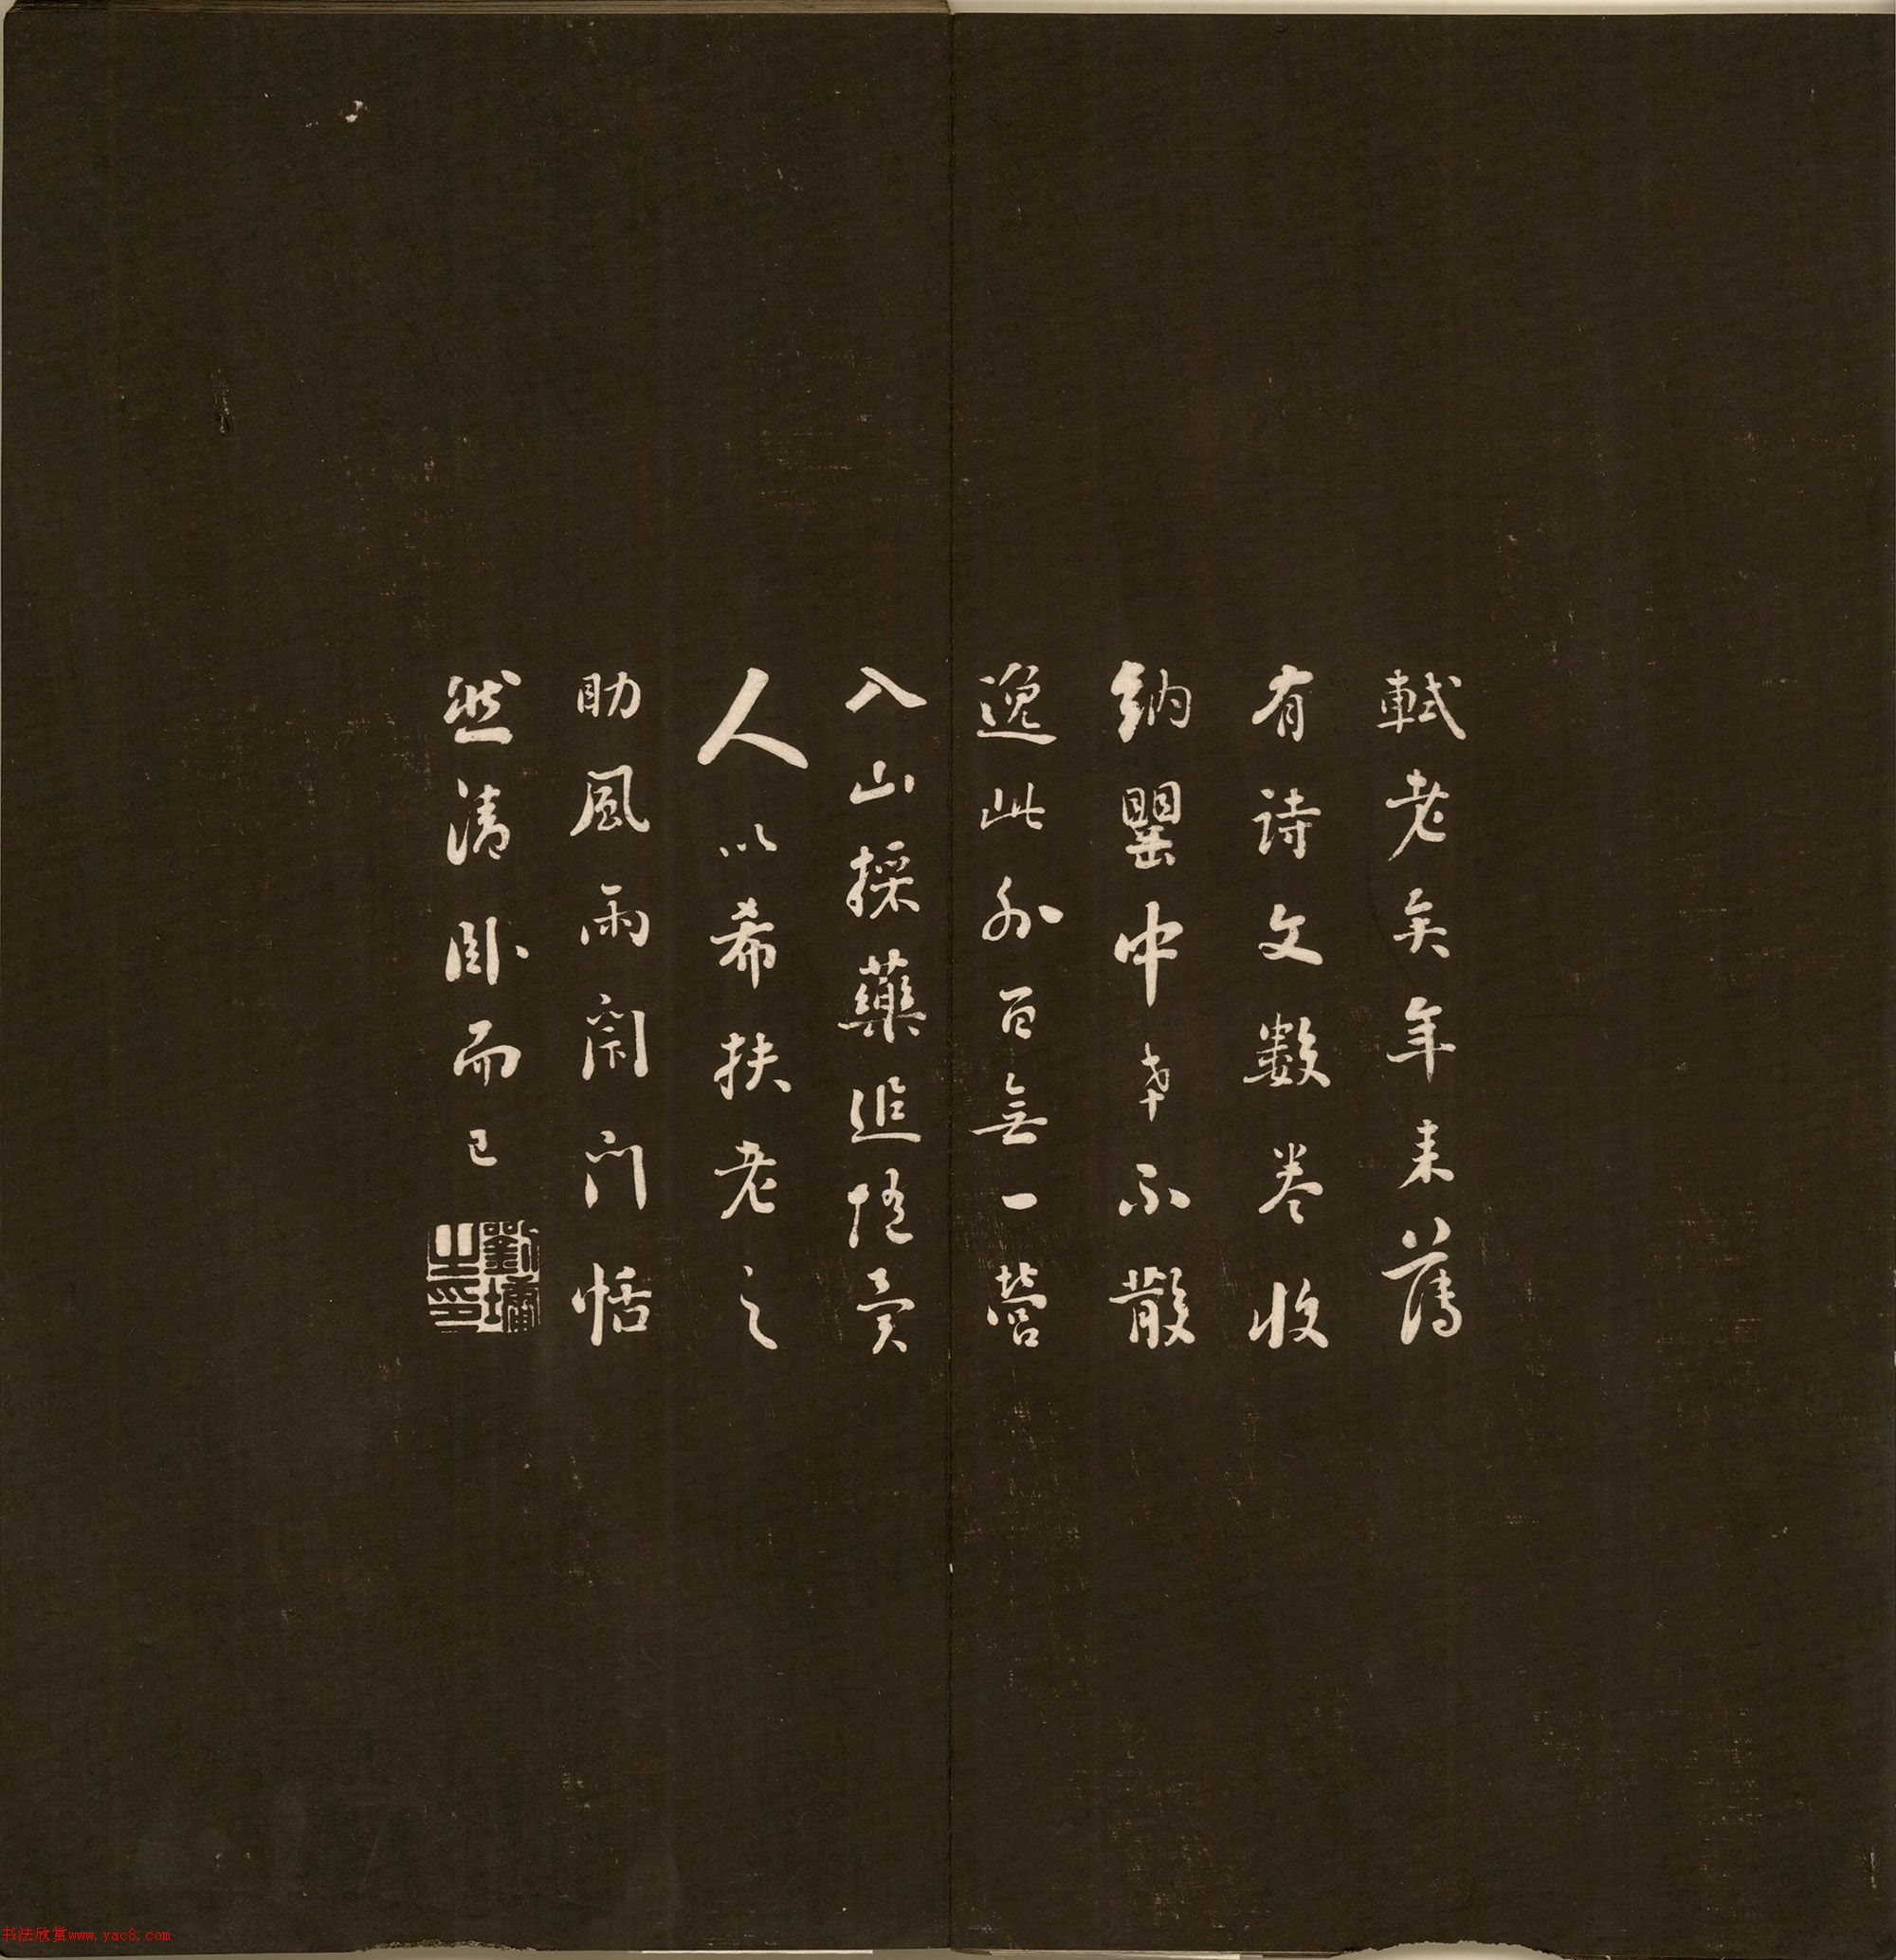 軾老矣年来薄
有诗文数卷收
納罌中幸不散
逸此外百無一營
入山採藥追随賣
人以希扶老之
助風雨闭门恬
然清卧而已
劉墉之印
书法欣赏www.yac8.com